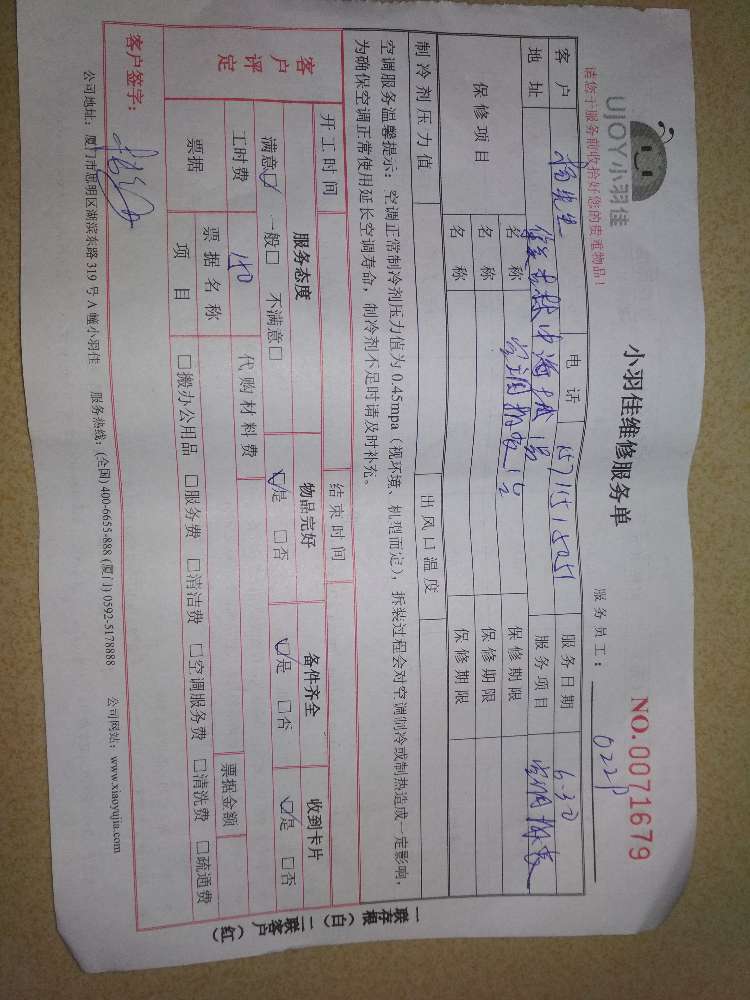 UJOY小羽佳
小羽佳维修服务单
NO.0071679
请您于服务前收拾好您的贵重物品!
服务员工:
客户 杨先生 电话 15711515051 服务日期 6-30
地址 服务项目 空调拆装
保修项目 名称 空调拆装1台 保修期限
名称 保修期限
名称 保修期限
制冷剂压力值 出风口温度
空调服务温馨提示:空调正常制冷剂压力值为0.45mpa(视环境、机型而定),拆装过程会对空调制冷或制热造成一定影响,
为确保空调正常使用延长空调寿命,制冷剂不足时请及时补充。
开工时间 结束时间
客户评定 服务态度 物品完好 备件齐全 收到卡片
满意☑ 一般□ 不满意□ ☑是 □否 ☑是 □否 ☑是 □否
工时费 150 代购材料费
票据 票据名称 票据金额
项目 □搬办公用品 □服务费 □清洁费 □空调服务费 □清洗费 □疏通费
客户签字:
公司地址:厦门市思明区湖滨东路319号A幢小羽佳 服务热线:(全国)400-6655-888 (厦门)0592-5178888 公司网站:www.xiaoyujia.com
一联存根(白)二联客户(红)